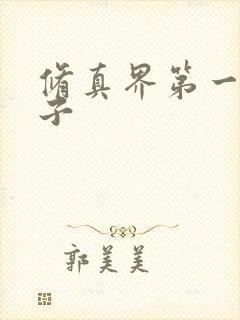 脩真界第一
子
郭美美